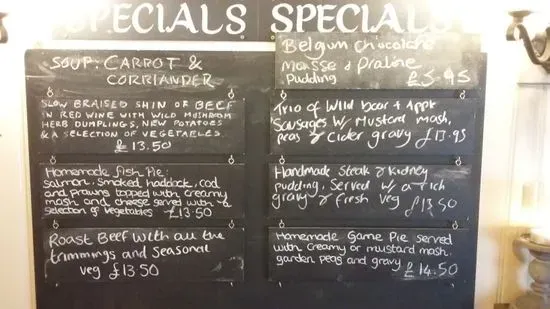 SPECIALS SPECIALS
SOUP: CARROT &
CORRIANDER
SLOW BRAISED SHIN OF BEEF
IN RED WINE WITH WILD MUSHROOM
HERB DUMPLINGS, NEW POTATOES
& A SELECTION OF VEGETABLES
£13.50
Homemade fish Pie:
salmon, smoked haddock, cod
and prawns topped with creamy
mash and cheese served with a
selection of vegetables £13.50
Roast Beef with all the
trimmings and seasonal
veg £13.50
Belgum chocolate
Mousse & Praline
Pudding £5.95
Trio of Wild boar & Apple
Sausages w/ Mustard mash,
peas & cider gravy £13.95
Handmade Steak & Kidney
pudding, Served w/ a rich
gravy & fresh veg £13.50
Homemade Game Pie served
with creamy or mustard mash,
garden peas and gravy £14.50